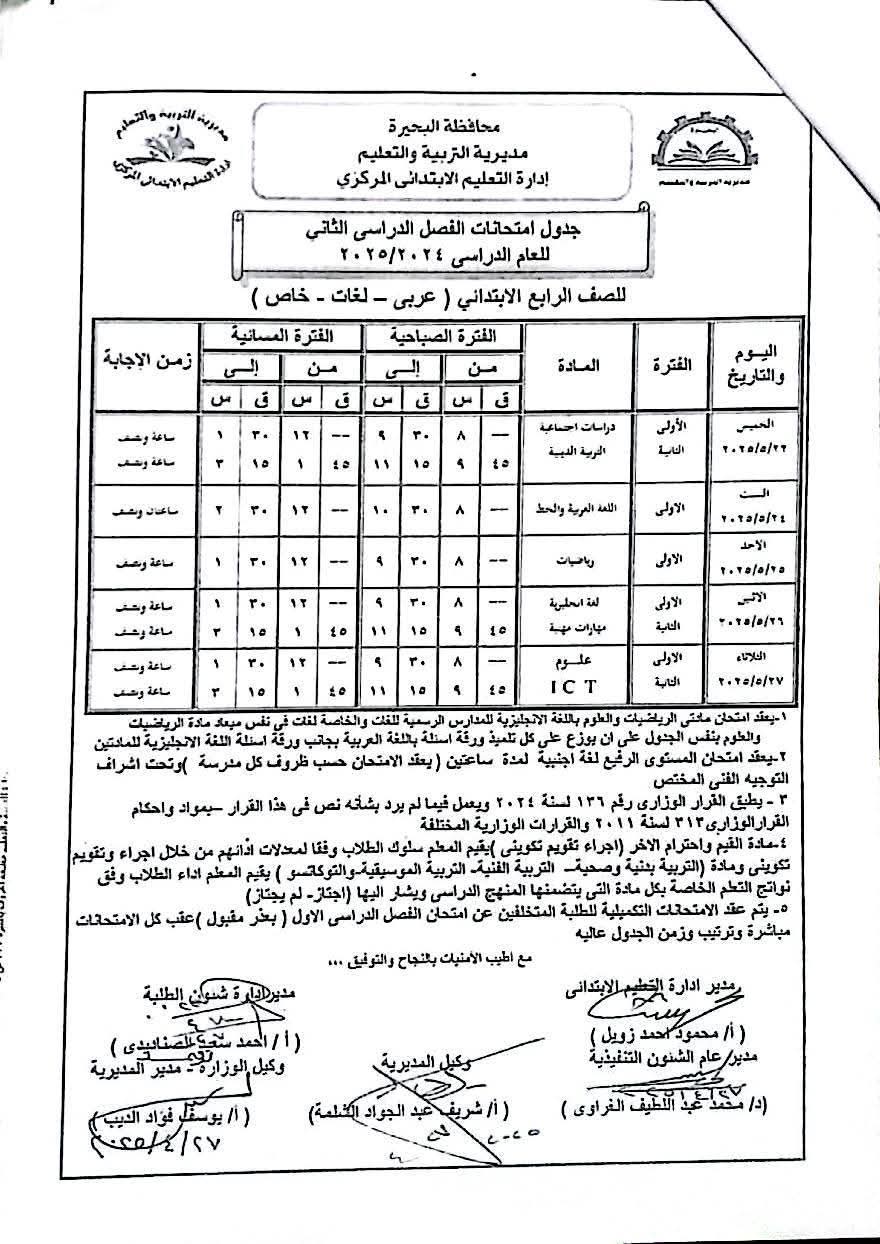 مديرية التربية والتعليم
إدارة التعليم الابتدائى المركزي
محافظة البحيرة
مديرية التربية والتعليم
إدارة التعليم الابتدائى المركزي
البحيرة
مديرية التربية والتعليم
جدول امتحانات الفصل الدراسى الثاني
للعام الدراسى ٢٠٢٥/٢٠٢٤
للصف الرابع الابتدائي ( عربى – لغات - خاص )
اليوم والتاريخ | الفترة | المادة | الفترة الصباحية | الفترة المسائية | زمن الإجابة
من | إلى | من | إلى
ق | س | ق | س | ق | س | ق | س
الخميس ٢٠٢٥/٥/٢٢ | الأولى | دراسات اجتماعية | -- | ٨ | ٣٠ | ٩ | -- | ١٢ | ٣٠ | ١ | ساعة ونصف
الثانية | التربية الدينية | ٤٥ | ٩ | ١٥ | ١١ | ٤٥ | ١ | ١٥ | ٣ | ساعة ونصف
السبت ٢٠٢٥/٥/٢٤ | الاولى | اللغة العربية والخط | -- | ٨ | ٣٠ | ١٠ | -- | ١٢ | ٣٠ | ٢ | ساعتان ونصف
الاحد ٢٠٢٥/٥/٢٥ | الاولى | رياضيات | -- | ٨ | ٣٠ | ٩ | -- | ١٢ | ٣٠ | ١ | ساعة ونصف
الاثنين ٢٠٢٥/٥/٢٦ | الاولى | لغة انجليزية | -- | ٨ | ٣٠ | ٩ | -- | ١٢ | ٣٠ | ١ | ساعة ونصف
الثانية | مهارات مهنية | ٤٥ | ٩ | ١٥ | ١١ | ٤٥ | ١ | ١٥ | ٣ | ساعة ونصف
الثلاثاء ٢٠٢٥/٥/٢٧ | الاولى | علوم | -- | ٨ | ٣٠ | ٩ | -- | ١٢ | ٣٠ | ١ | ساعة ونصف
الثانية | ICT | ٤٥ | ٩ | ١٥ | ١١ | ٤٥ | ١ | ١٥ | ٣ | ساعة ونصف
١-يعقد امتحان مادتى الرياضيات والعلوم باللغة الانجليزية للمدارس الرسمية للغات والخاصة لغات فى نفس ميعاد مادة الرياضيات
والعلوم بنفس الجدول على ان يوزع على كل تلميذ ورقة اسئلة باللغة العربية بجانب ورقة اسئلة اللغة الانجليزية للمادتين
٢-يعقد امتحان المستوى الرفيع لغة اجنبية لمدة ساعتين ( يعقد الامتحان حسب ظروف كل مدرسة )وتحت اشراف
التوجيه الفنى المختص
٣ - يطبق القرار الوزارى رقم ١٣٦ لسنة ٢٠٢٤ ويعمل فيما لم يرد بشأنه نص فى هذا القرار –بمواد واحكام
القرارالوزارى٣١٣ لسنة ٢٠١١ والقرارات الوزارية المختلفة
٤-مادة القيم واحترام الاخر (اجراء تقويم تكوينى )يقيم المعلم سلوك الطلاب وفقا لمعدلات ادائهم من خلال اجراء وتقويم
تكوينى ومادة (التربية بدنية وصحية– التربية الفنية- التربية الموسيقية-والتوكاتسو ) يقيم المعلم اداء الطلاب وفق
نواتج التعلم الخاصة بكل مادة التى يتضمنها المنهج الدراسى ويشار اليها (اجتاز- لم يجتاز)
٥- يتم عقد الامتحانات التكميلية للطلبة المتخلفين عن امتحان الفصل الدراسى الاول ( بعذر مقبول )عقب كل الامتحانات
مباشرة وترتيب وزمن الجدول عاليه
مع اطيب الأمنيات بالنجاح والتوفيق ...
مدير ادارة التعليم الابتدائى
( أ/ محمود احمد زويل )
مدير ادارة شئون الطلبة
( أ / احمد سعد الصناديدى )
مدير عام الشئون التنفيذية
(د/ محمد عبد اللطيف الغراوى )
وكيل المديرية
( أ/ شريف عبد الجواد الشلمة)
٢٠٢٥
وكيل الوزارة - مدير المديرية
( أ/ يوسف فؤاد الديب )
٢٠٢٥/٤/٢٧